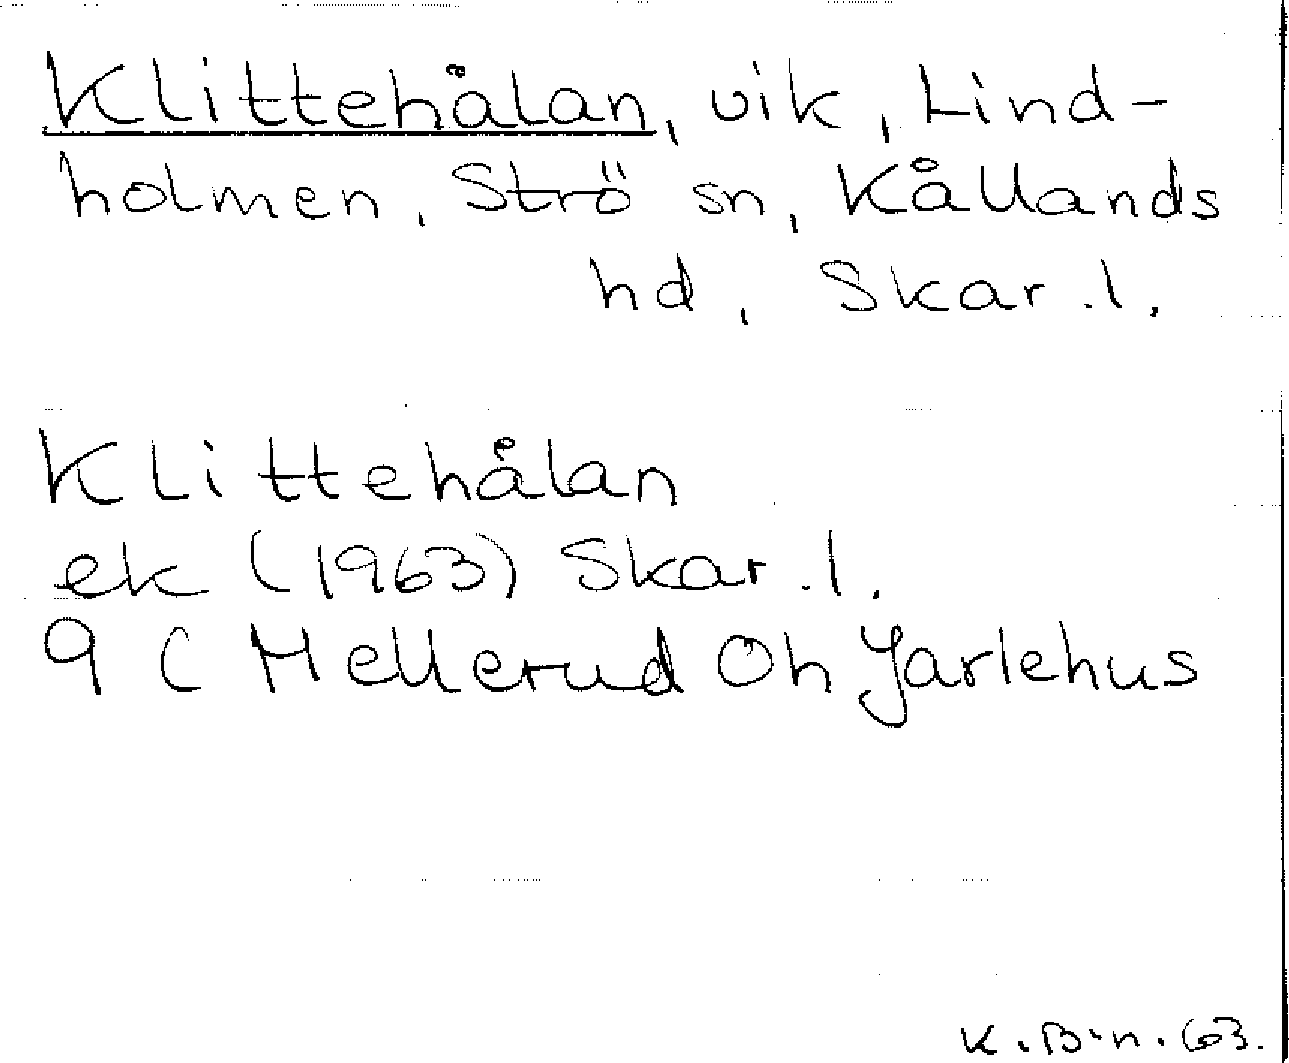 Klittehålan, vik, Lind-
holmen, Strö sn, Kållands
hd, Skar. l.
Klittehålan
ek (1963) Skar. l.
9 C Mellerud Öh Jarlehus
K. B-n. 63.